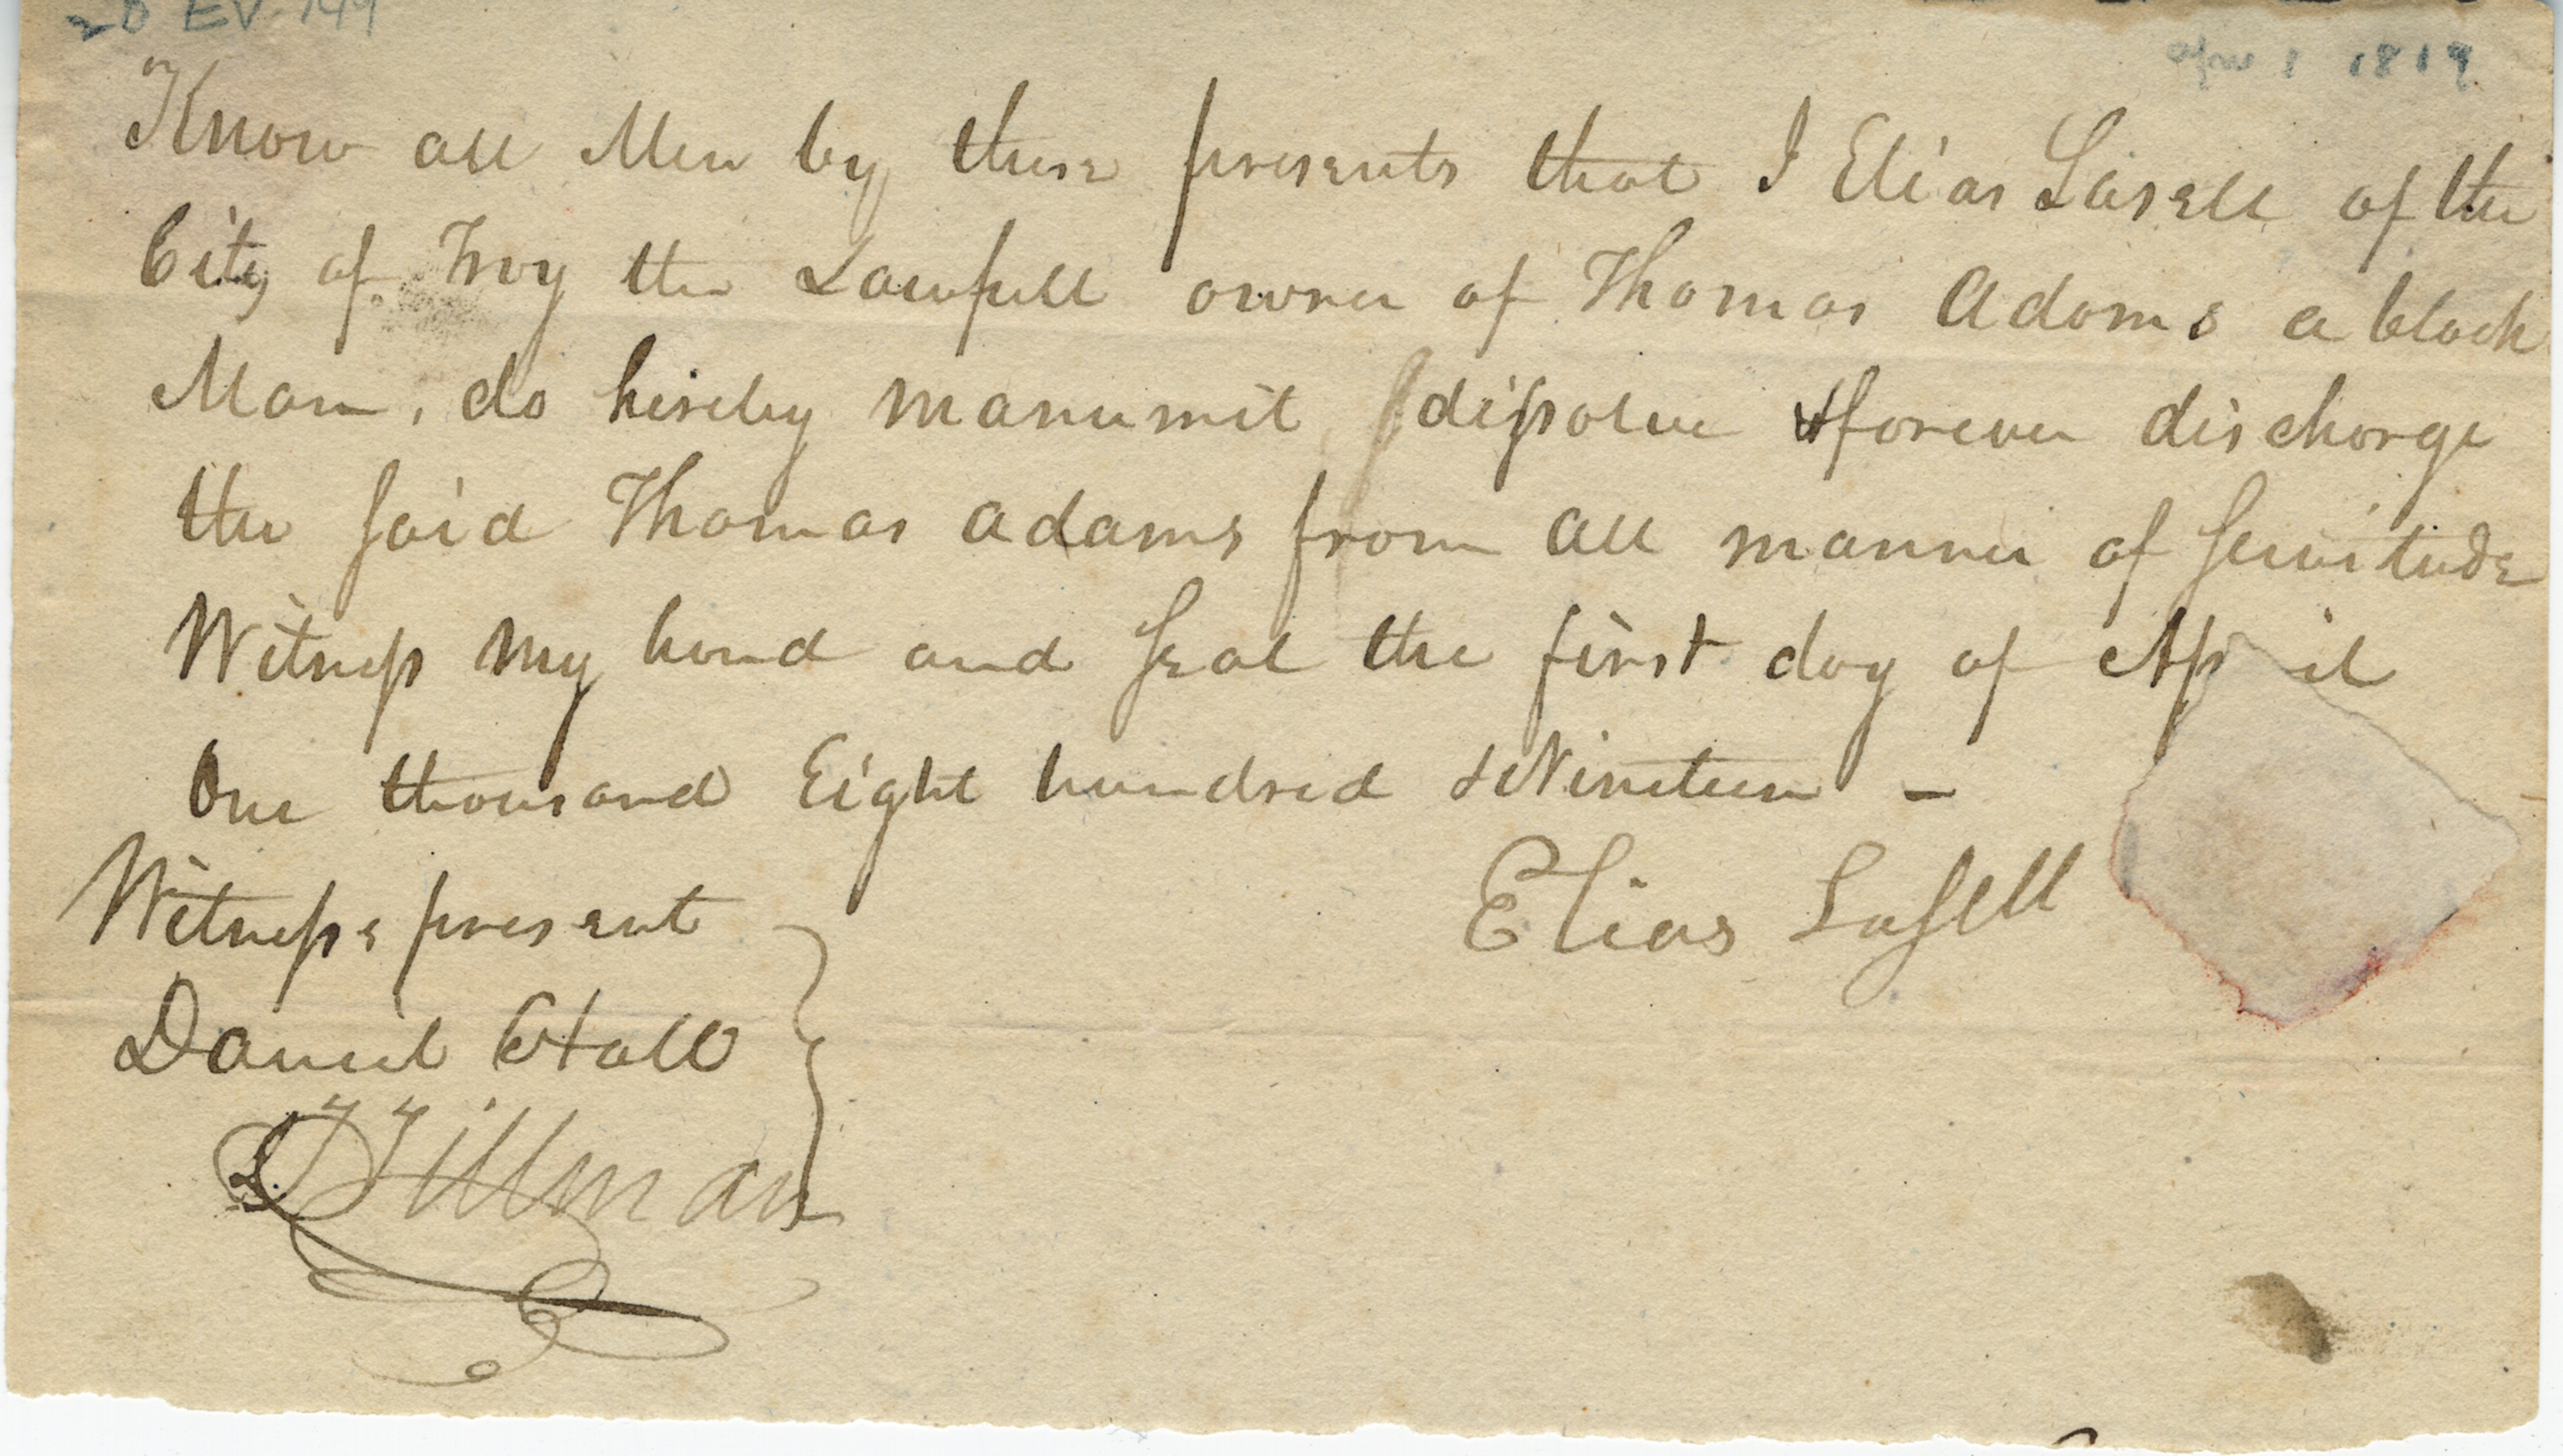 Apr 1 1819
Know all Men by these presents that I Elias Lasell of the
City of Troy the Lawfull owner of Thomas Adams a black
Man, do hereby manumit dissolve & forever discharge
the said Thomas Adams from all manner of servitude
Witness my hand and seal the first day of April
One thousand Eight hundred & Nineteen –
Witness present
Elias Lasell
Daniel Hall
Tillman